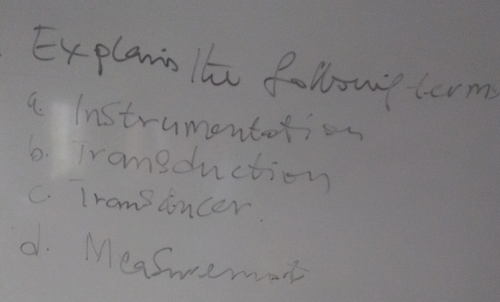 Explain the following terms
a. Instrumentation
b. Transduction
c. Transducer.
d. Measurement